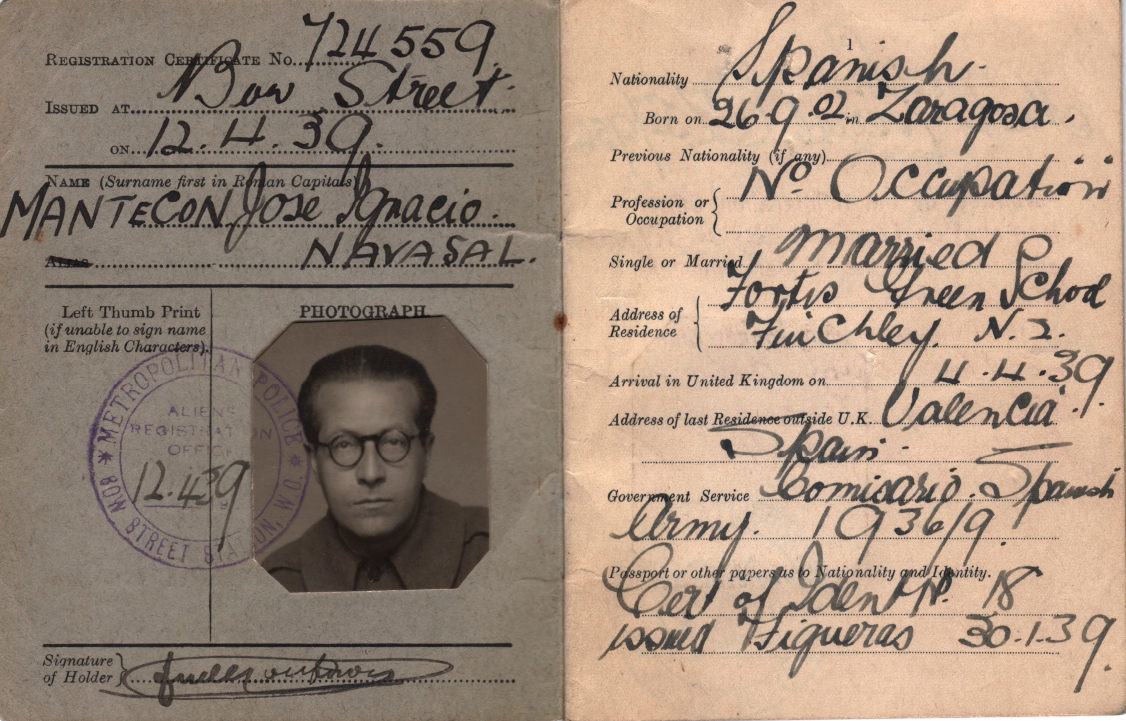 REGISTRATION CERTIFICATE No. 724559
ISSUED AT Bow Street.
ON 12.4.39.
NAME (Surname first in Roman Capitals)
MANTECON Jose Ignacio.
ALIAS NAVASAL.
Left Thumb Print
(if unable to sign name
in English Characters).
PHOTOGRAPH.
METROPOLITAN POLICE
ALIENS
REGISTRATION
OFFICE
12.4.39
BOW STREET STATION, W.
Signature
of Holder
1
Nationality Spanish.
Born on 26.9.02. in Zaragosa.
Previous Nationality (if any)
Profession or Occupation
No Occupation
Single or Married Married
Address of Residence
Fortis Green School
Finchley. N.2.
Arrival in United Kingdom on 4.4.39.
Address of last Residence outside U.K. Valencia.
Spain.
Government Service Comisario. Spanish
Army. 1936/9.
Passport or other papers as to Nationality and Identity.
Cert of Ident No. 18
issued Figueras 30.1.39.